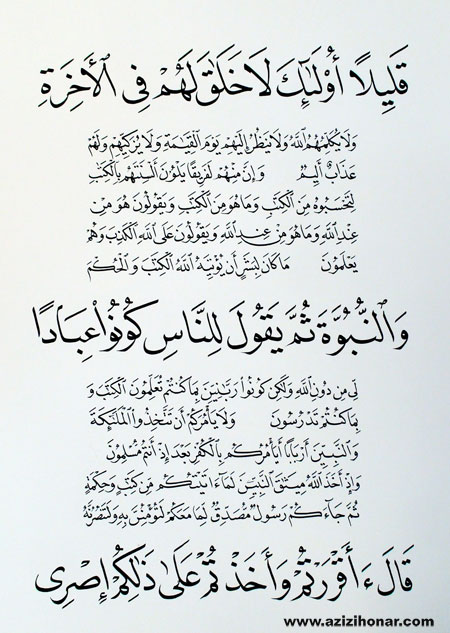 قَلِيلًا أُوْلَٰٓئِكَ لَا خَلَٰقَ لَهُمْ فِى ٱلْأَخِرَةِ
وَلَا يُكَلِّمُهُمُ ٱللَّهُ وَلَا يَنظُرُ إِلَيْهِمْ يَوْمَ ٱلْقِيَٰمَةِ وَلَا يُزَكِّيهِمْ وَلَهُمْ
عَذَابٌ أَلِيمٌ وَإِنَّ مِنْهُمْ لَفَرِيقًا يَلْوُۥنَ أَلْسِنَتَهُم بِٱلْكِتَٰبِ
لِتَحْسَبُوهُ مِنَ ٱلْكِتَٰبِ وَمَا هُوَ مِنَ ٱلْكِتَٰبِ وَيَقُولُونَ هُوَ مِنْ
عِندِ ٱللَّهِ وَمَا هُوَ مِنْ عِندِ ٱللَّهِ وَيَقُولُونَ عَلَى ٱللَّهِ ٱلْكَذِبَ وَهُمْ
يَعْلَمُونَ مَا كَانَ لِبَشَرٍ أَن يُؤْتِيَهُ ٱللَّهُ ٱلْكِتَٰبَ وَٱلْحُكْمَ
وَٱلنُّبُوَّةَ ثُمَّ يَقُولَ لِلنَّاسِ كُونُوا۟ عِبَادًا
لِّى مِن دُونِ ٱللَّهِ وَلَٰكِن كُونُوا۟ رَبَّٰنِيِّينَ بِمَا كُنتُمْ تُعَلِّمُونَ ٱلْكِتَٰبَ وَ
بِمَا كُنتُمْ تَدْرُسُونَ وَلَا يَأْمُرَكُمْ أَن تَتَّخِذُوا۟ ٱلْمَلَٰٓئِكَةَ
وَٱلنَّبِيِّينَ أَرْبَابًا أَيَأْمُرُكُم بِٱلْكُفْرِ بَعْدَ إِذْ أَنتُم مُّسْلِمُونَ
وَإِذْ أَخَذَ ٱللَّهُ مِيثَٰقَ ٱلنَّبِيِّينَ لَمَآ ءَاتَيْتُكُم مِّن كِتَٰبٍ وَحِكْمَةٍ
ثُمَّ جَآءَكُمْ رَسُولٌ مُّصَدِّقٌ لِّمَا مَعَكُمْ لَتُؤْمِنُنَّ بِهِۦ وَلَتَنصُرُنَّهُ
قَالَ ءَأَقْرَرْتُمْ وَأَخَذْتُمْ عَلَىٰ ذَٰلِكُمْ إِصْرِى
www.azizihonar.com